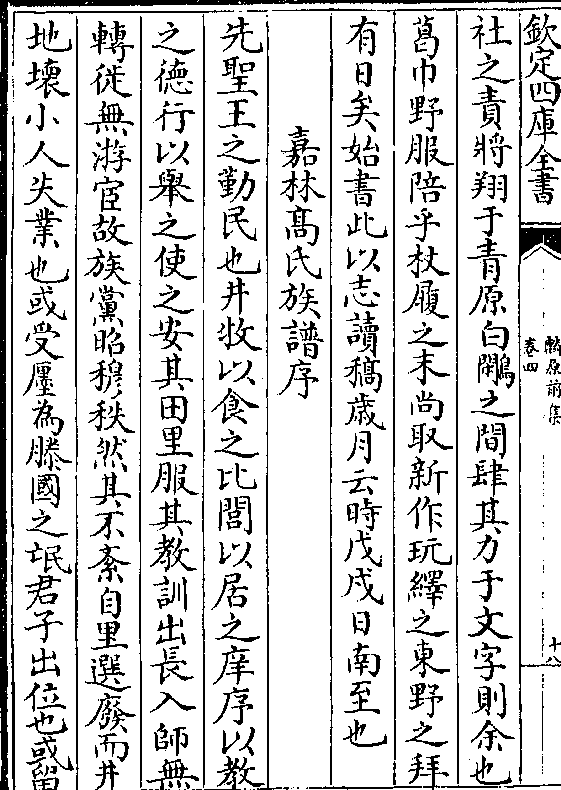 欽定四庫全書
卷四
十八
社之責將翔于青原白鷳之間肆其力于文字則余也
葛巾野服陪乎杖履之末尚取新作玩繹之東野之拜
有日矣始書此以志讀稿歲月云時戊戌日南至也
嘉林髙氏族譜序
先聖王之勤民也井牧以食之比閭以居之庠序以教
之德行以舉之使之安其田里服其教訓出長入師無
轉徙無游宦故族黨昭穆秩然其不紊自里選廢而井
地壞小人失業也或受廛為滕國之氓君子出位也或留